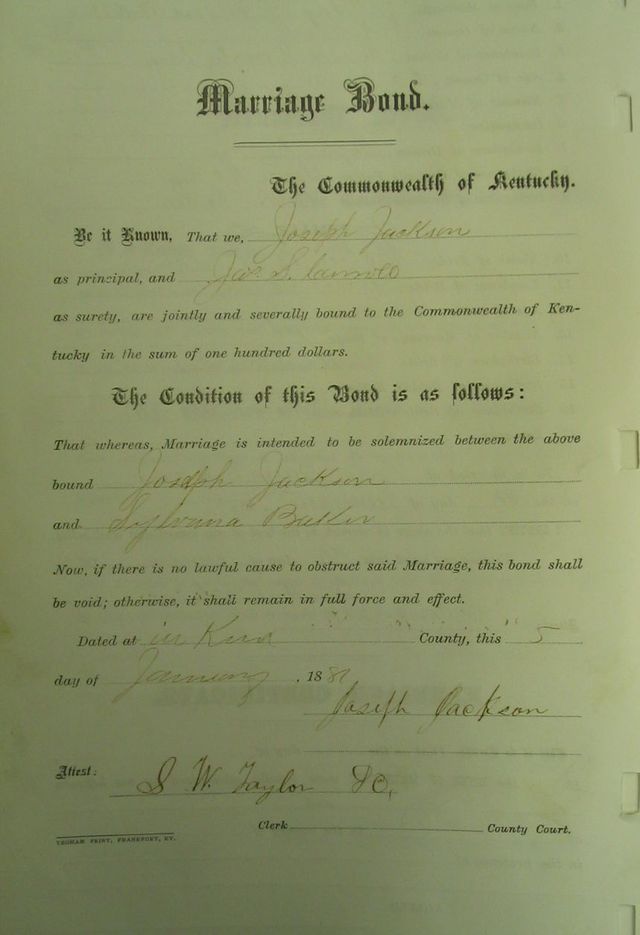 Marriage Bond.
The Commonwealth of Kentucky.
Be it Known, That we, Joseph Jackson
as principal, and Jas S.
as surety, are jointly and severally bound to the Commonwealth of Ken-
tucky in the sum of one hundred dollars.
The Condition of this Bond is as follows:
That whereas, Marriage is intended to be solemnized between the above
bound Joseph Jackson
and Sylvana
Now, if there is no lawful cause to obstruct said Marriage, this bond shall
be void; otherwise, it shall remain in full force and effect.
Dated at in County, this 5
day of January, 188
Joseph Jackson
Attest: S W. Taylor DC,
Clerk County Court.
YEOMAN PRINT, FRANKFORT, KY.